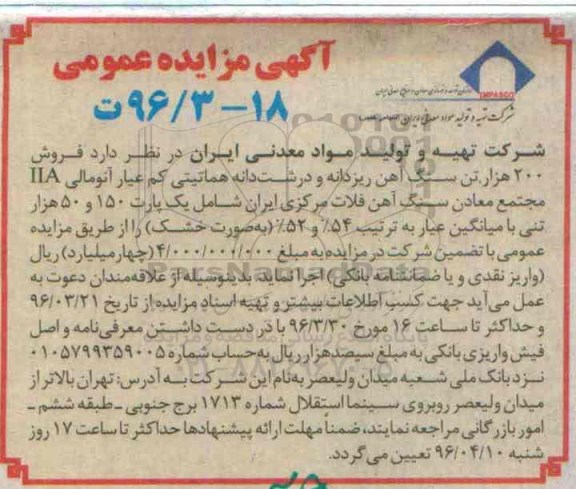 آگهی مزایده عمومی
۱۸-۹۶/۳ ت
IMPASCO
شرکت تهیه و تولید مواد معدنی ایران
شرکت تهیه و تولید مواد معدنی ایران در نظر دارد فروش
۲۰۰ هزار تن سنگ آهن ریزدانه و درشت‌دانه هماتیتی کم عیار آنومالی IIA
مجتمع معادن سنگ آهن فلات مرکزی ایران شامل یک پارت ۱۵۰ و ۵۰ هزار
تنی با میانگین عیار به ترتیب ۵۴٪ و ۵۲٪ (به‌صورت خشک) را از طریق مزایده
عمومی با تضمین شرکت در مزایده به مبلغ ۴/۰۰۰/۰۰۰/۰۰۰ (چهار میلیارد) ریال
(واریز نقدی و یا ضمانتنامه بانکی) اجرا نماید. بدینوسیله از علاقه‌مندان دعوت به
عمل می‌آید جهت کسب اطلاعات بیشتر و تهیه اسناد مزایده از تاریخ ۹۶/۰۳/۲۱
و حداکثر تا ساعت ۱۶ مورخ ۹۶/۳/۳۰ با در دست داشتن معرفی‌نامه و اصل
فیش واریزی بانکی به مبلغ سیصدهزار ریال به حساب شماره ۰۱۰۵۷۹۹۳۵۹۰۰۵
نزد بانک ملی شعبه میدان ولیعصر به‌نام این شرکت به آدرس: تهران بالاتر از
میدان ولیعصر روبروی سینما استقلال شماره ۱۷۱۳ برج جنوبی ـ طبقه ششم ـ
امور بازرگانی مراجعه نمایند، ضمناً مهلت ارائه پیشنهادها حداکثر تا ساعت ۱۷ روز
شنبه ۹۶/۰۴/۱۰ تعیین می گردد.